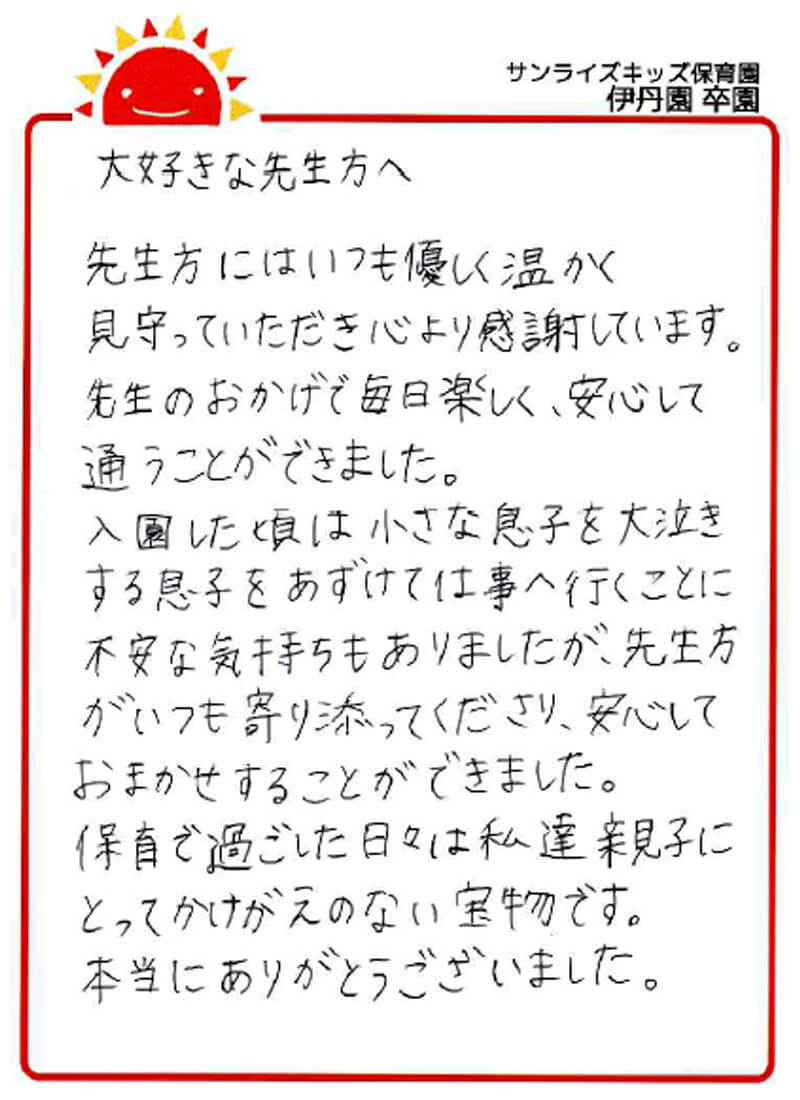 サンライズキッズ保育園
伊丹園 卒園
大好きな先生方へ
先生方にはいつも優しく温かく
見守っていただき心より感謝しています。
先生のおかげで毎日楽しく、安心して
通うことができました。
入園した頃は小さな息子を大泣き
する息子をあずけては事へ行くことに
不安な気持ちもありましたが、先生方
がいつも寄り添ってくださり、安心して
おまかせすることができました。
保育で過ごした日々は私達親子に
とってかけがえのない宝物です。
本当にありがとうございました。